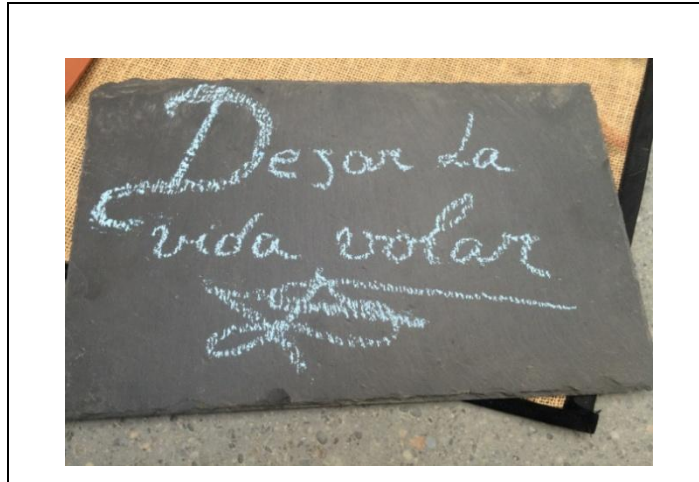 Dejar La
vida volar